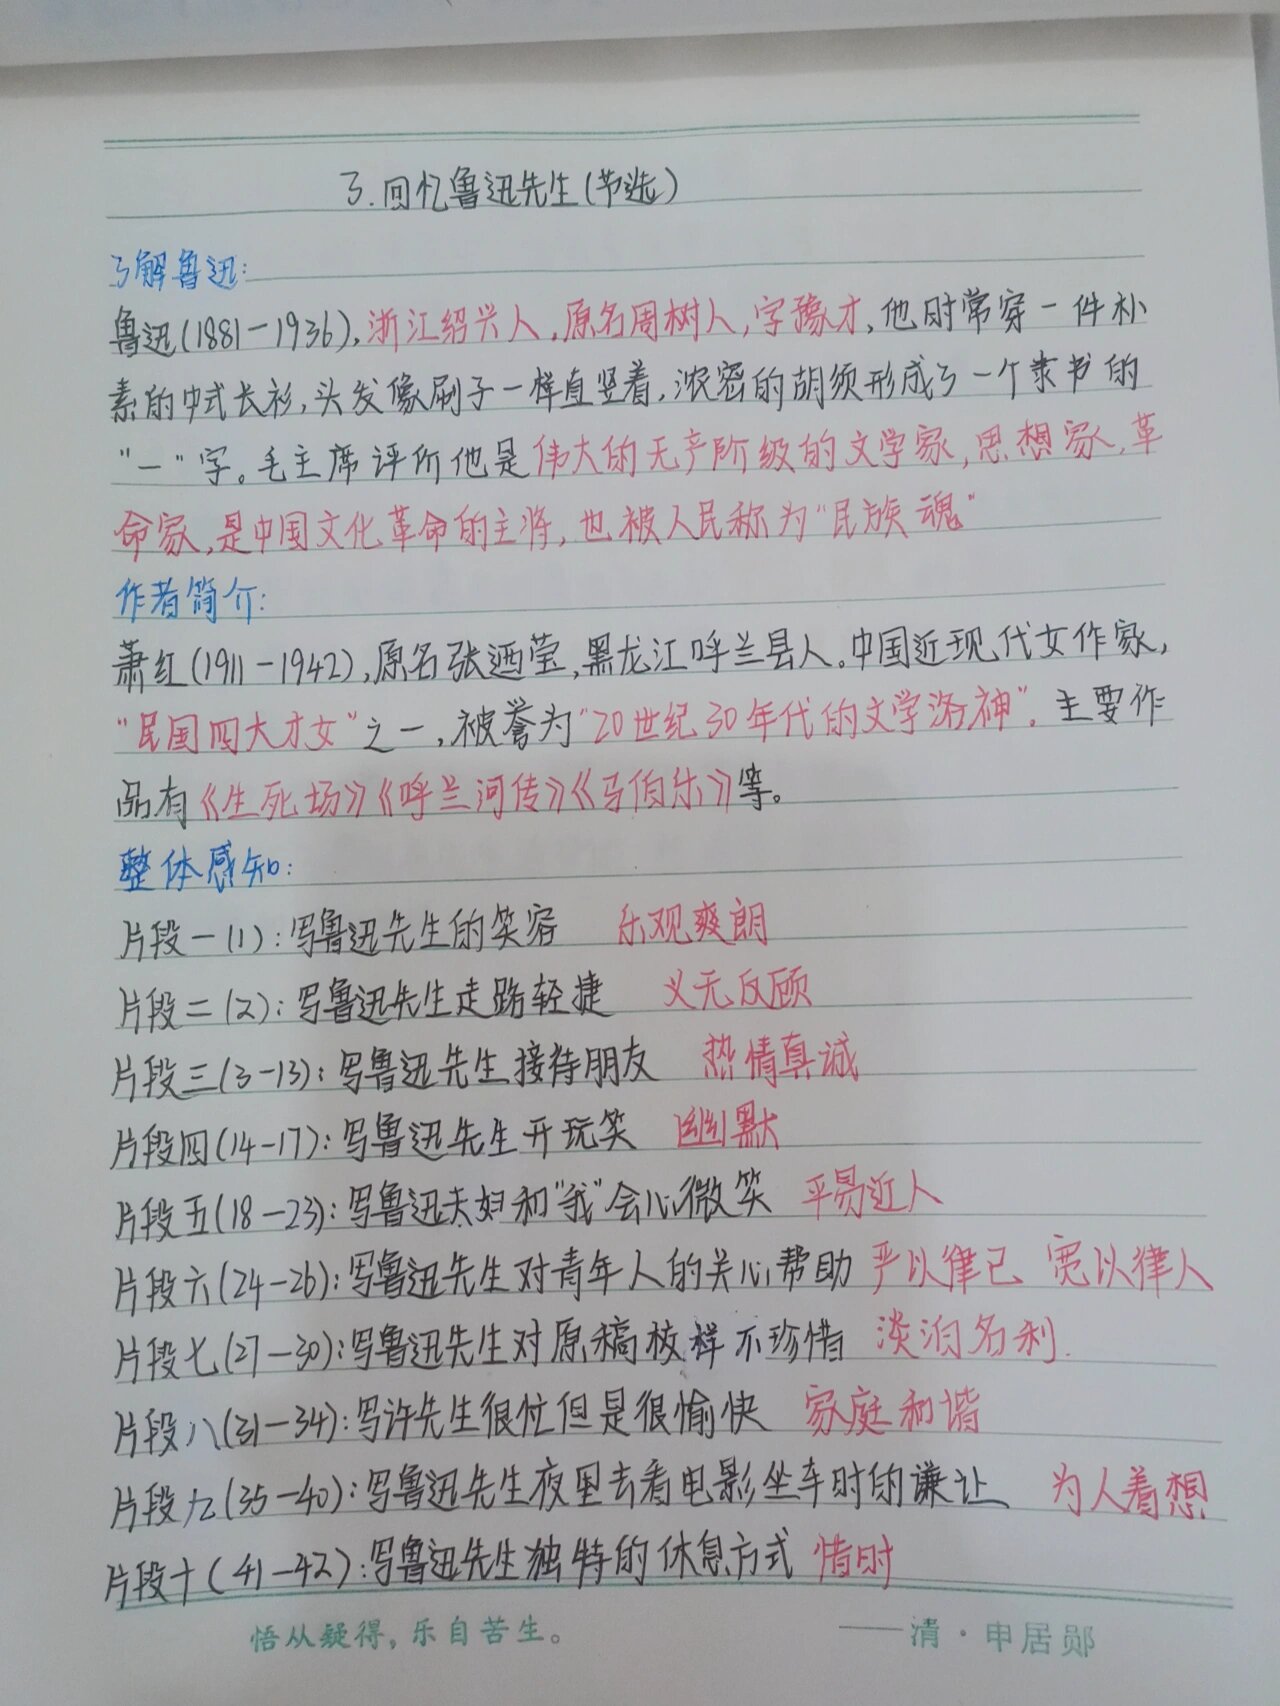 3.回忆鲁迅先生(节选)
了解鲁迅:
鲁迅(1881-1936),浙江绍兴人,原名周树人,字豫才,他时常穿一件朴
素的中式长衫,头发像刷子一样直竖着,浓密的胡须形成了一个隶书的
"一"字。毛主席评价他是伟大的无产阶级的文学家,思想家,革
命家,是中国文化革命的主将,也被人民称为"民族魂"
作者简介:
萧红(1911-1942),原名张迺莹,黑龙江呼兰县人。中国近现代女作家,
"民国四大才女"之一,被誉为"20世纪30年代的文学洛神"。主要作
品有《生死场》《呼兰河传》《马伯乐》等。
整体感知:
片段一(1):写鲁迅先生的笑容 乐观爽朗
片段二(2):写鲁迅先生走路轻捷 义无反顾
片段三(3-13):写鲁迅先生接待朋友 热情真诚
片段四(14-17):写鲁迅先生开玩笑 幽默
片段五(18-23):写鲁迅夫妇和"我"会心微笑 平易近人
片段六(24-26):写鲁迅先生对青年人的关心帮助 严以律己 宽以律人
片段七(27-30):写鲁迅先生对原稿校样不珍惜 淡泊名利.
片段八(31-34):写许先生很忙但是很愉快 家庭和谐
片段九(35-40):写鲁迅先生夜里去看电影坐车时的谦让 为人着想
片段十(41-42):写鲁迅先生独特的休息方式 惜时
悟从疑得,乐自苦生。 ——清·申居郧